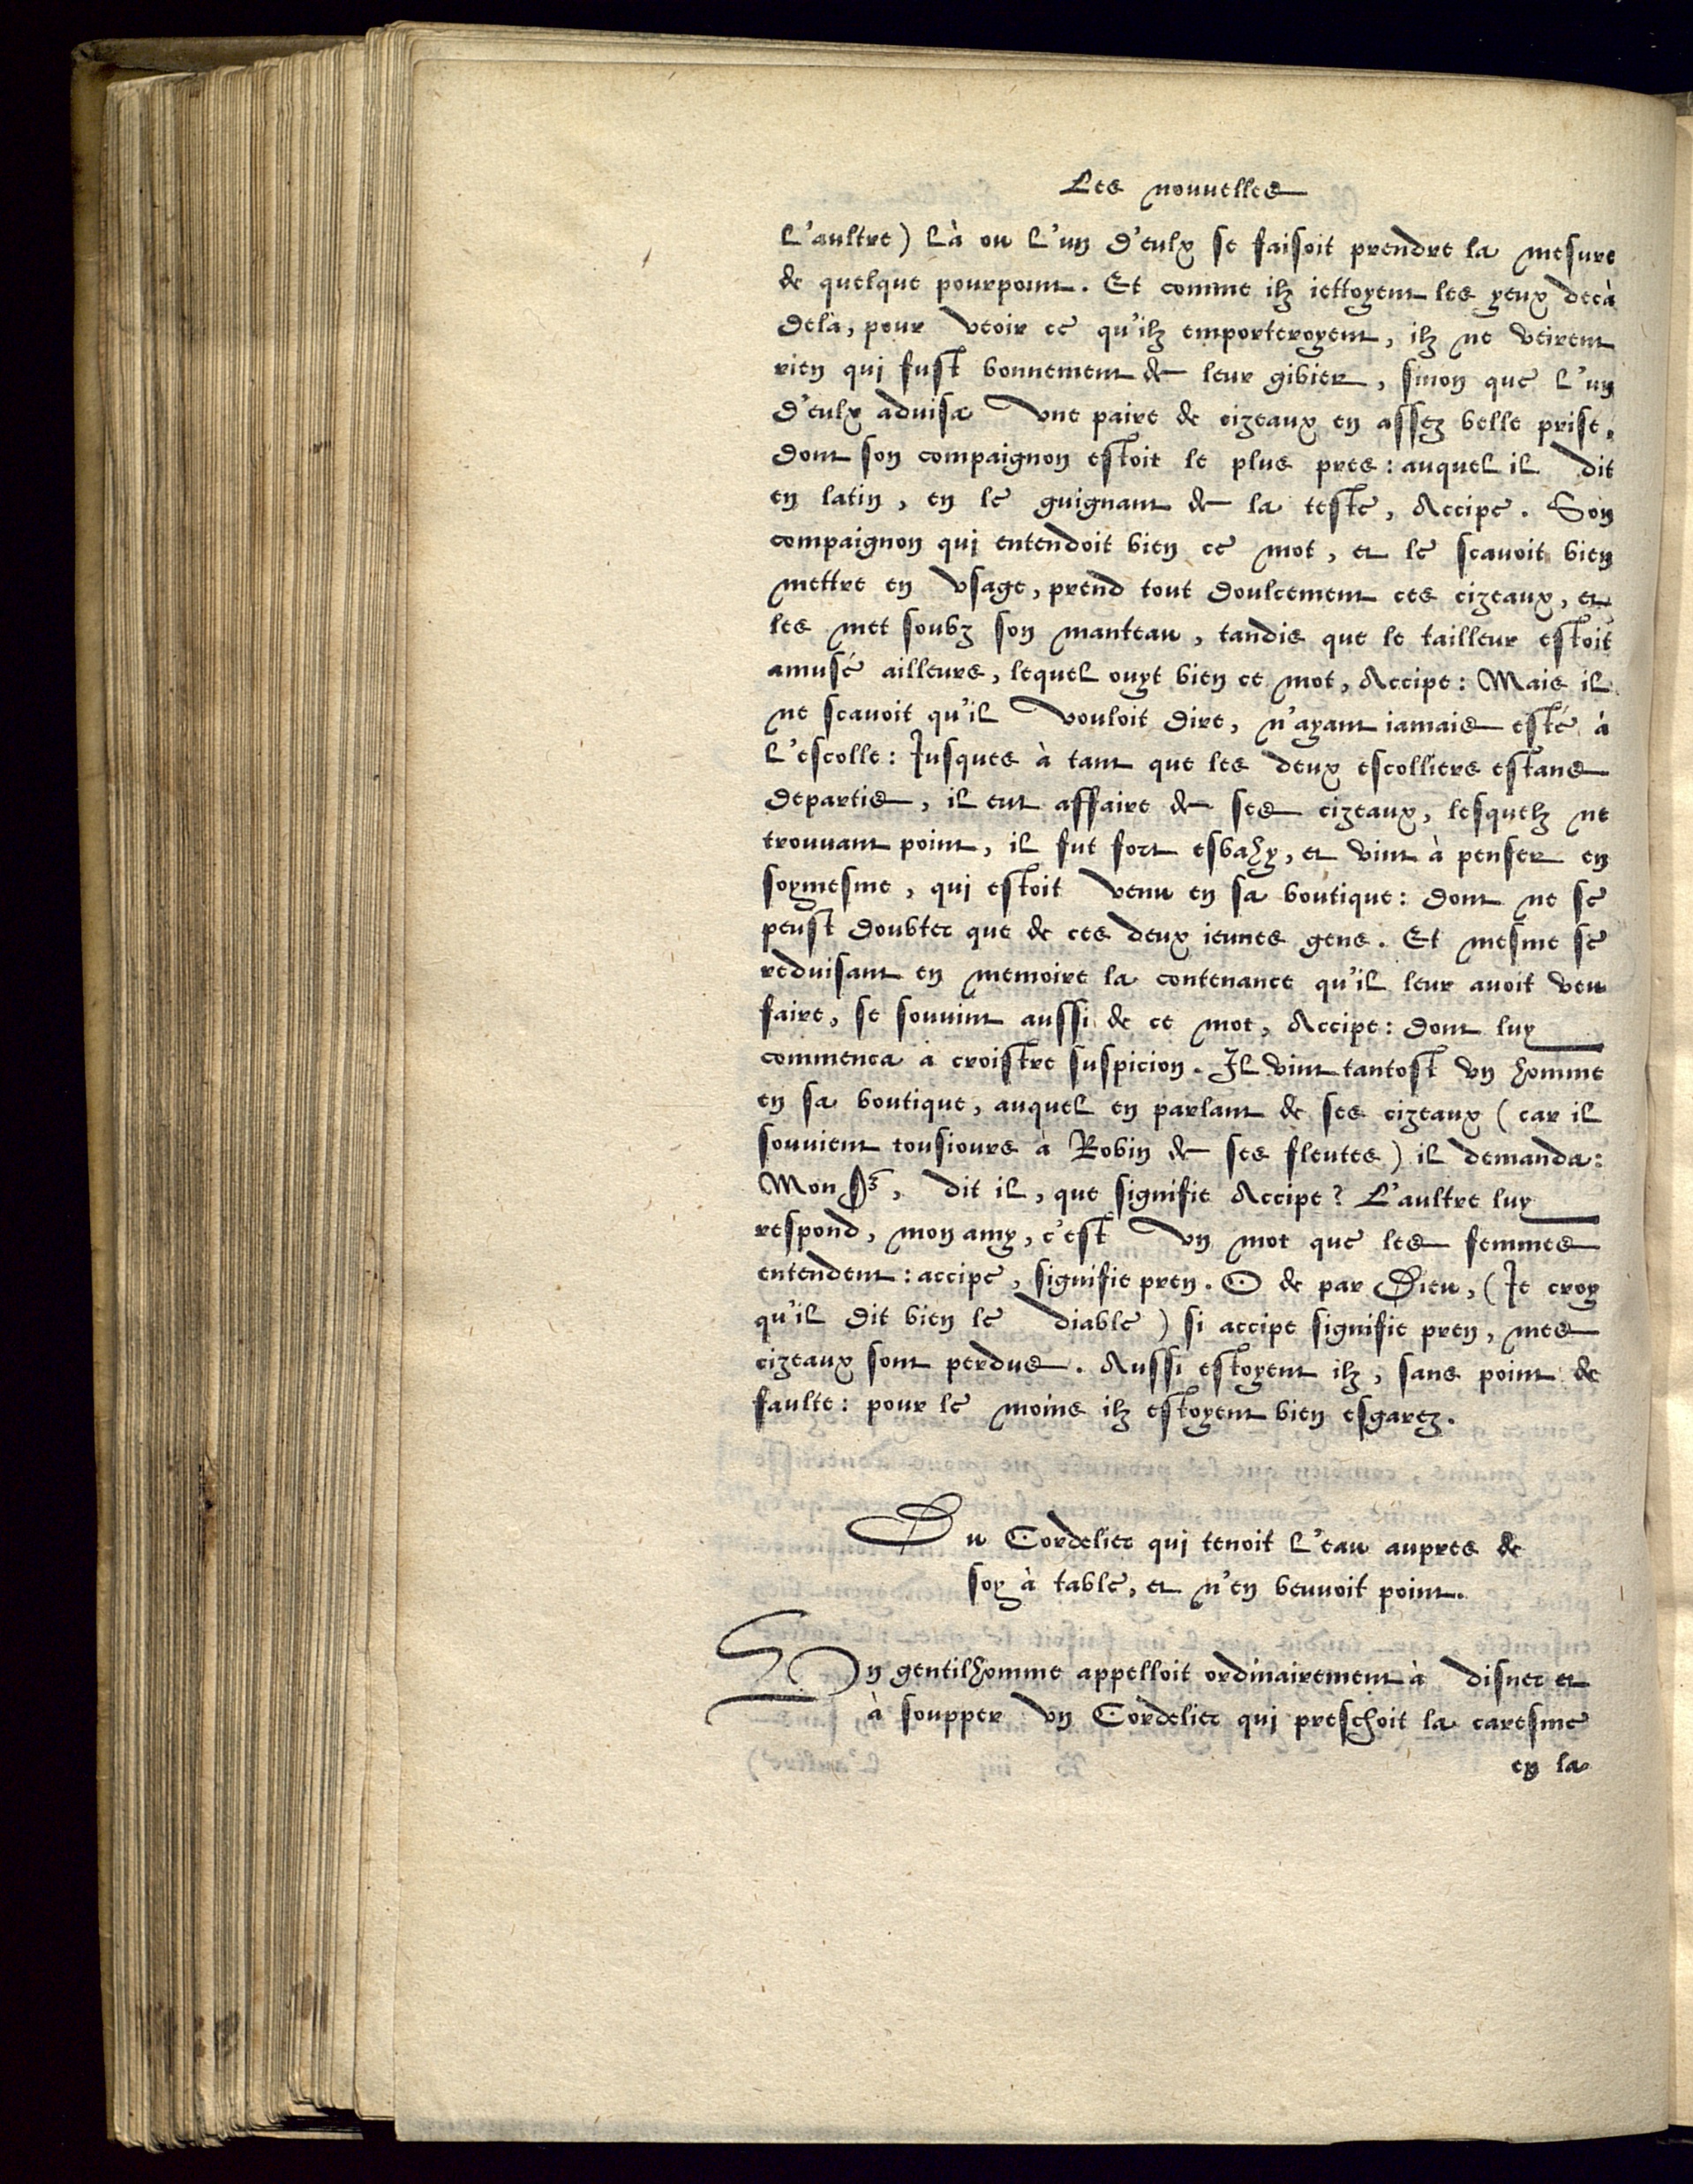 Les nouuelles
L'aultre) là ou l'un d'eulx se faisoit prendre la mesure
de quelque pourpoint. Et comme ilz iettoyent les yeux decà
delà, pour veoir ce qu'ilz emporteroyent, ilz ne veirent
rien qui fust bonnement de leur gibier, sinon que l'un
d'eulx aduisa vne paire de cizeaux en assez belle prise,
dont son compaignon estoit le plus pres: auquel il dit
en latin, en le guignant de la teste, Accipe. Son
compaignon qui entendoit bien ce mot, et le scauoit bien
mettre en vsage, prend tout doulcement ces cizeaux, et
les met soubz son manteau, tandis que le tailleur estoit
amusé ailleurs, lequel ouyt bien ce mot, Accipe: Mais il
ne scauoit qu'il vouloit dire, n'ayant iamais esté à
l'escolle: Iusques à tant que les deux escolliers estans
departis, il eut affaire de ses cizeaux, lesquelz ne
trouuant point, il fut fort esbahy, et vint à penser en
soymesme, qui estoit venu en sa boutique: dont ne se
peust doubter que de ces deux ieunes gens. Et mesme se
reduisant en memoire la contenance qu'il leur auoit veu
faire, se souuint aussi de ce mot, Accipe: dont luy
commenca à croistre suspicion. Il vint tantost vn homme
en sa boutique, auquel en parlant de ses cizeaux (car il
souuient tousiours à Robin de ses fleutes) il demanda:
Mon Sr, dit il, que signifie Accipe? L'aultre luy
respond, mon amy, c'est vn mot que les femmes
entendent: accipe, signifie pren. O de par Dieu, (Ie croy
qu'il dit bien le diable) si accipe signifie pren, mes
cizeaux sont perdus. Aussi estoyent ilz, sans point de
faulte: pour le moins ilz estoyent bien esgarez.
Du Cordelier qui tenoit l'eau aupres de
soy à table, et n'en beuuoit point.
Vn gentilhomme appelloit ordinairement à disner et
à soupper vn Cordelier qui preschoit la caresme
en la